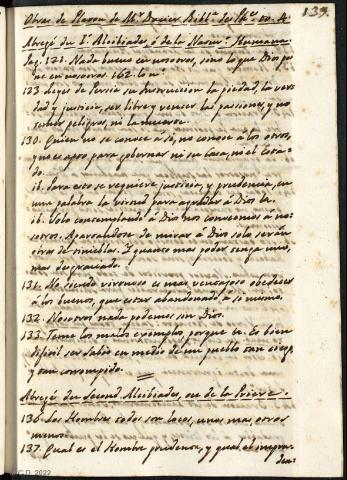 139.
Obras de Platon de Mr. Dacier Bibla. de
Abregé du 1r. Alcibiades, ó de la Natur. Humana
pag. 121. Nada bueno en nosotros, sino lo que Dios po
ne en nosotros. 162.
123 leyes de Persia su instruccion la piedad, la ver
dad y justicia, ser libre y vencer las pasiones, y no
temer peligros, ni la muerte.
130. Quien no se conoce a sí, no conoce á los otros,
y no es apto para gobernar ni su casa, ni el Esta-
do.
ib. Para esto se requiere justicia, y prudencia, en
una palabra la virtud para agradar á Dios &c.
ib. Solo contemplando á Dios nos conocemos a no-
sotros. Apartandose de mirar á Dios solo seran
obras de tinieblas. Y quanto mas poder tenga uno,
mas desgraciado.
131. No siendo virtuoso es mas ventajoso obedecer
á los buenos, que estar abandonado á si mismo.
132. Nosotros nada podemos sin Dios.
133. Temo los malos exemplos porque &c. Es bien
dificil ser sabio en medio de un pueblo tan ciego,
y tan corrompido.
Abregé du Second Alcibiades, ou de la Priere.
136. Los Hombres todos son locos, unos mas otros
menos.
137. Qual es el Hombre prudente, y qual el impru-
den-
C.D. 2022